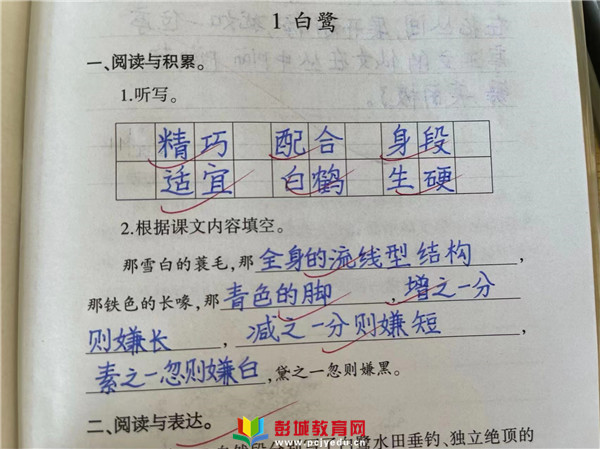 1 白鹭
一、阅读与积累。
1.听写。
精巧 配合 身段
适宜 白鹤 生硬
2.根据课文内容填空。
那雪白的蓑毛,那全身的流线型结构,
那铁色的长喙,那青色的脚,增之一分
则嫌长,减之一分则嫌短,
素之一忽则嫌白,黛之一忽则嫌黑。
二、阅读与表达。
鹭水田垂钓、独立绝顶的
彭城教育网
www.pcjyedu.cn